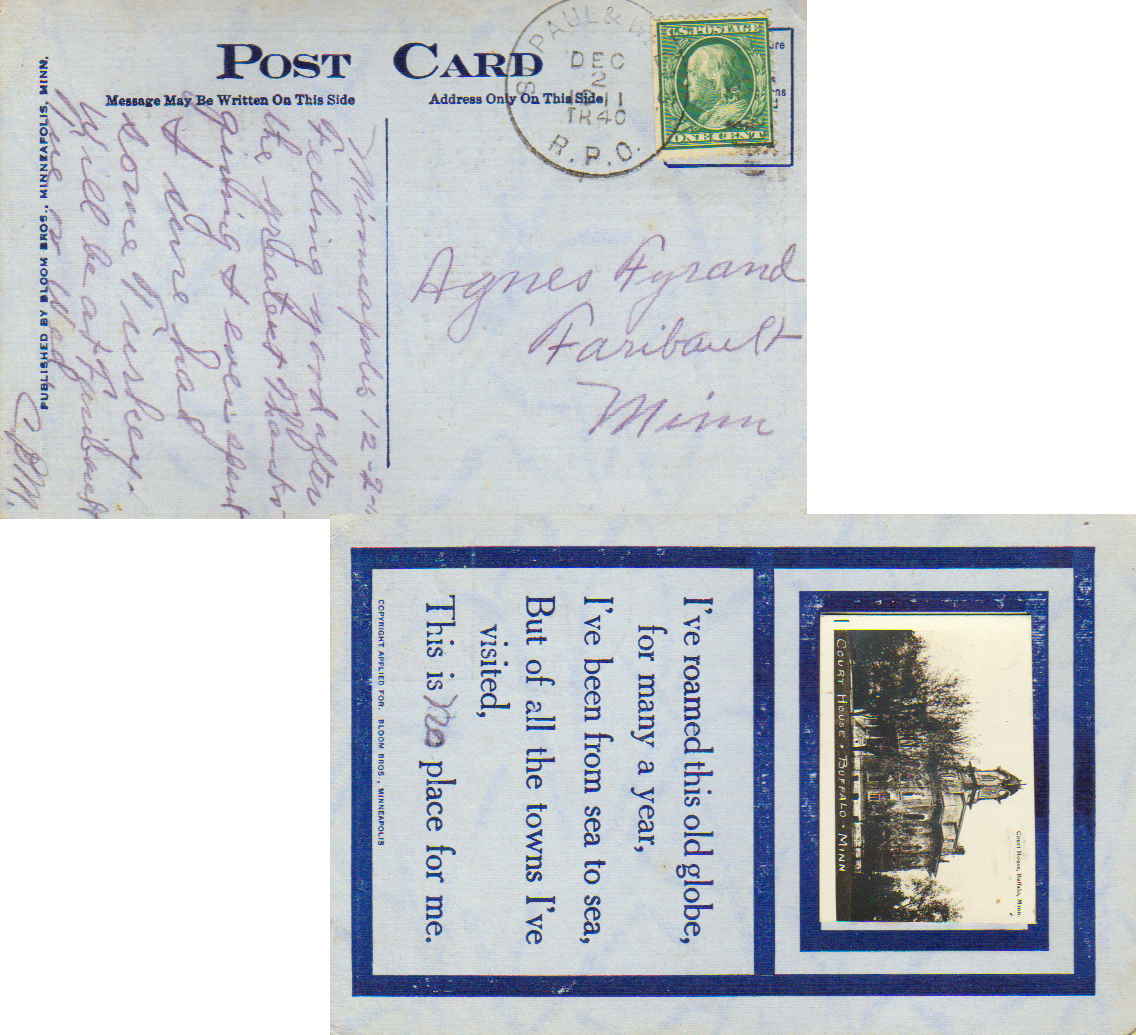 POST CARD
Message May Be Written On This Side
Address Only On This Side
PAUL &
DEC
2
1911
TR 40
R.P.O.
U.S. POSTAGE
ONE CENT
PUBLISHED BY BLOOM BROS., MINNEAPOLIS, MINN.
Minneapolis 12-2-11
Feeling good after
the greatest Thanks-
giving I ever spent
I sure had
some Turkey.
Will be at Faribault
Wed
C.D.M.
Agnes Fyrand
Faribault
Minn
COURT HOUSE • BUFFALO • MINN
Court House, Buffalo, Minn.
I've roamed this old globe,
for many a year,
I've been from sea to sea,
But of all the towns I've
visited,
This is no place for me.
COPYRIGHT APPLIED FOR. BLOOM BROS., MINNEAPOLIS